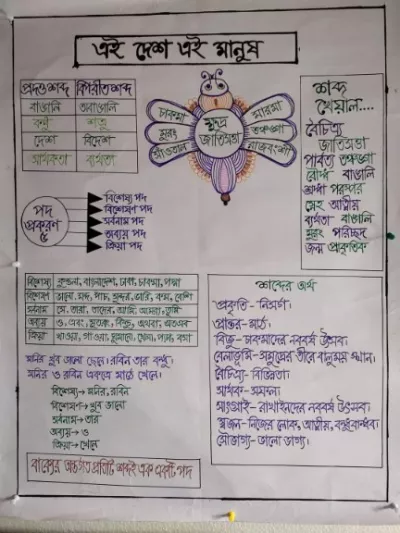 এই দেশ এই মানুষ
প্রদত্ত শব্দ বিপরীত শব্দ
বাঙালি অবাঙালি
বন্ধু শত্রু
দেশ বিদেশ
সার্থকতা ব্যর্থতা
ক্ষুদ্র
জাতিসত্তা
চাকমা
মুরং
সাঁওতাল
মারমা
তঞ্চঙ্গা
রাজবংশী
শব্দ
খেয়াল....
বৈচিত্র্য
জাতিসত্তা
পার্বত্য তঞ্চঙ্গা
বৌদ্ধ বাঙালি
শ্রদ্ধা পরস্পর
স্নেহ আত্মীয়
ব্যর্থতা বাঙালি
মুরং পরিচ্ছদ
জন্ম প্রাকৃতিক
পদ
প্রকরণ
৫
বিশেষ্য পদ
বিশেষণ পদ
সর্বনাম পদ
অব্যয় পদ
ক্রিয়া পদ
বিশেষ্য বাংলাদেশ, ঢাকা, চাকমা, পদ্মা
বিশেষণ ভালো, মন্দ, পাঁচ, সুন্দর, ভারি, কম, বেশি
সর্বনাম সে, তারা, তাদের, আমি, আমরা, তুমি
অব্যয় ও, এবং, সুতরাং, কিন্তু, অথবা, অতএব
ক্রিয়া খাওয়া, যাওয়া, ঘুমানো, খেলা, পড়া, বসা
মনির খুব ভালো ছেলে। রবিন তার বন্ধু।
মনির ও রবিন একসাথে মাঠে খেলে।
বিশেষ্য→ মনির, রবিন
বিশেষণ→ খুব ভালো
সর্বনাম→ তার
অব্যয়→ ও
ক্রিয়া→ খেলে
বাক্যের অন্তর্গত প্রতিটি শব্দই এক একটি পদ
শব্দের অর্থ
প্রকৃতি- নিসর্গ।
প্রান্তর- মাঠ।
বিজু- চাকমাদের নববর্ষ উৎসব।
বেলাভূমি- সমুদ্রের তীরে বালুময় স্থান।
বৈচিত্র্য- বিভিন্নতা।
সার্থক- সফল।
সাংগ্রাই- রাখাইনদের নববর্ষ উৎসব।
স্বজন- নিজের লোক, আত্মীয়, বন্ধুবান্ধব।
সৌভাগ্য- ভালো ভাগ্য।